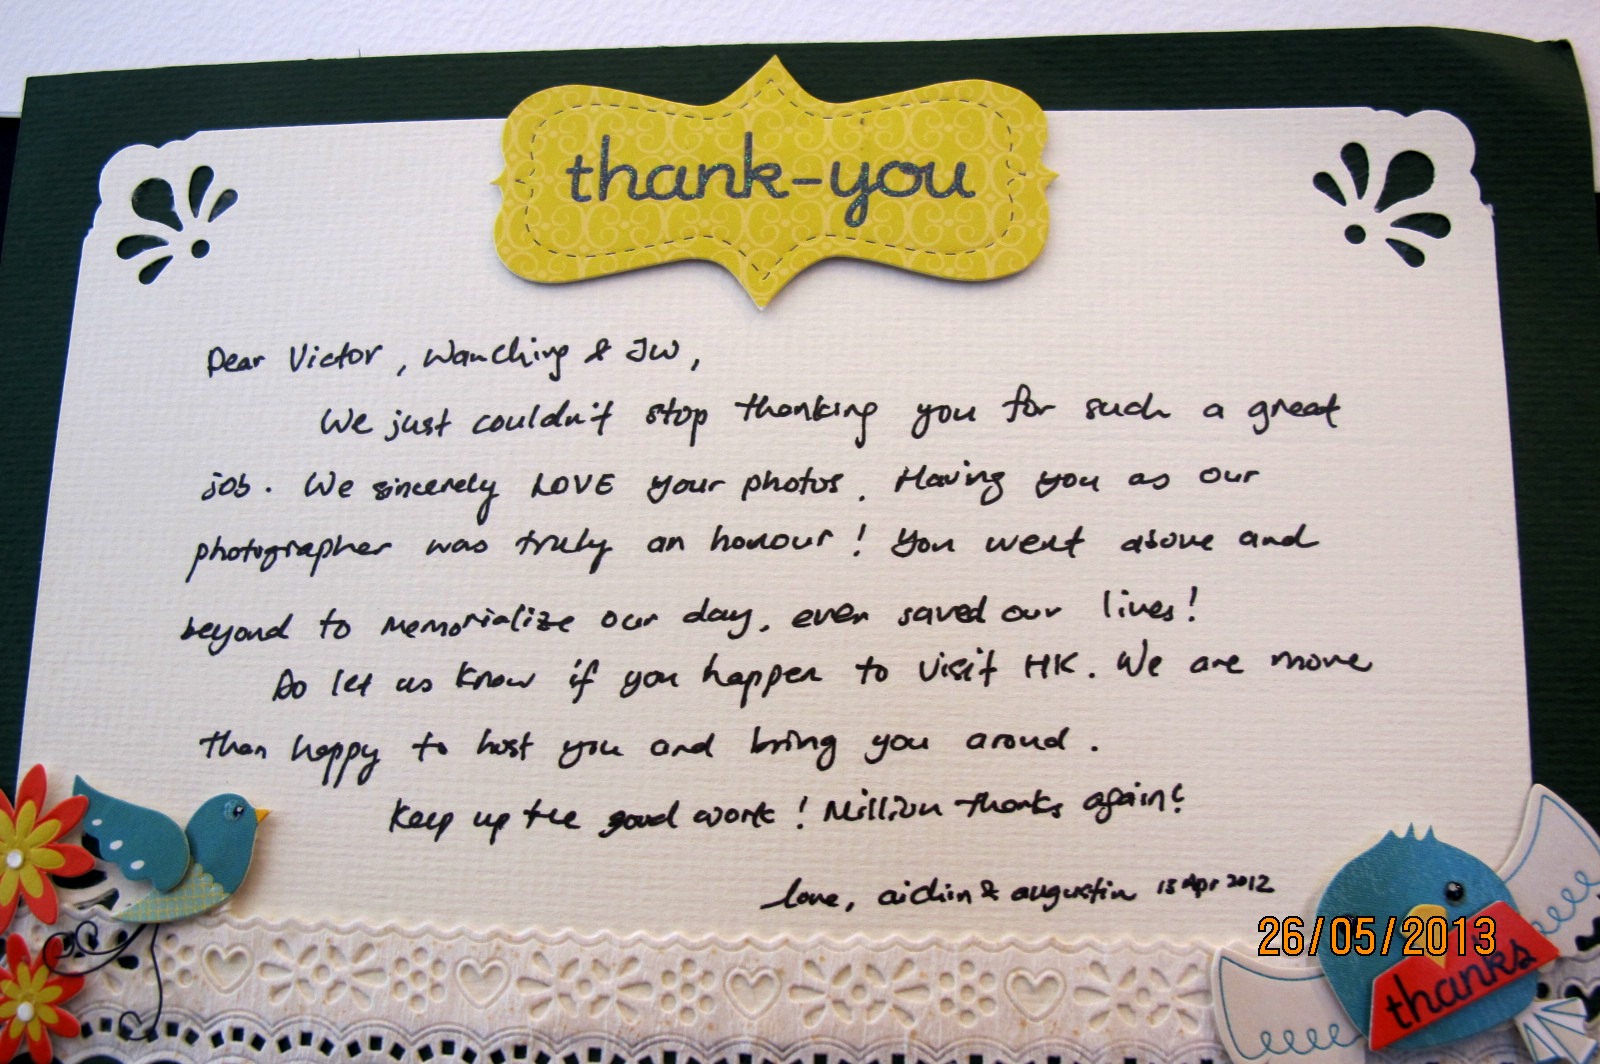 thank-you
Dear Victor, Wanching & JW,
We just couldn't stop thanking you for such a great
job. We sincerely LOVE your photos. Having you as our
photographer was truly an honour! You went above and
beyond to memorialize our day, even saved our lives!
Do let us know if you happen to visit HK. We are more
than happy to host you and bring you aroud.
Keep up the good work! Million thanks again!
love, aidin & augustin 15 Apr 2012
26/05/2013
thanks